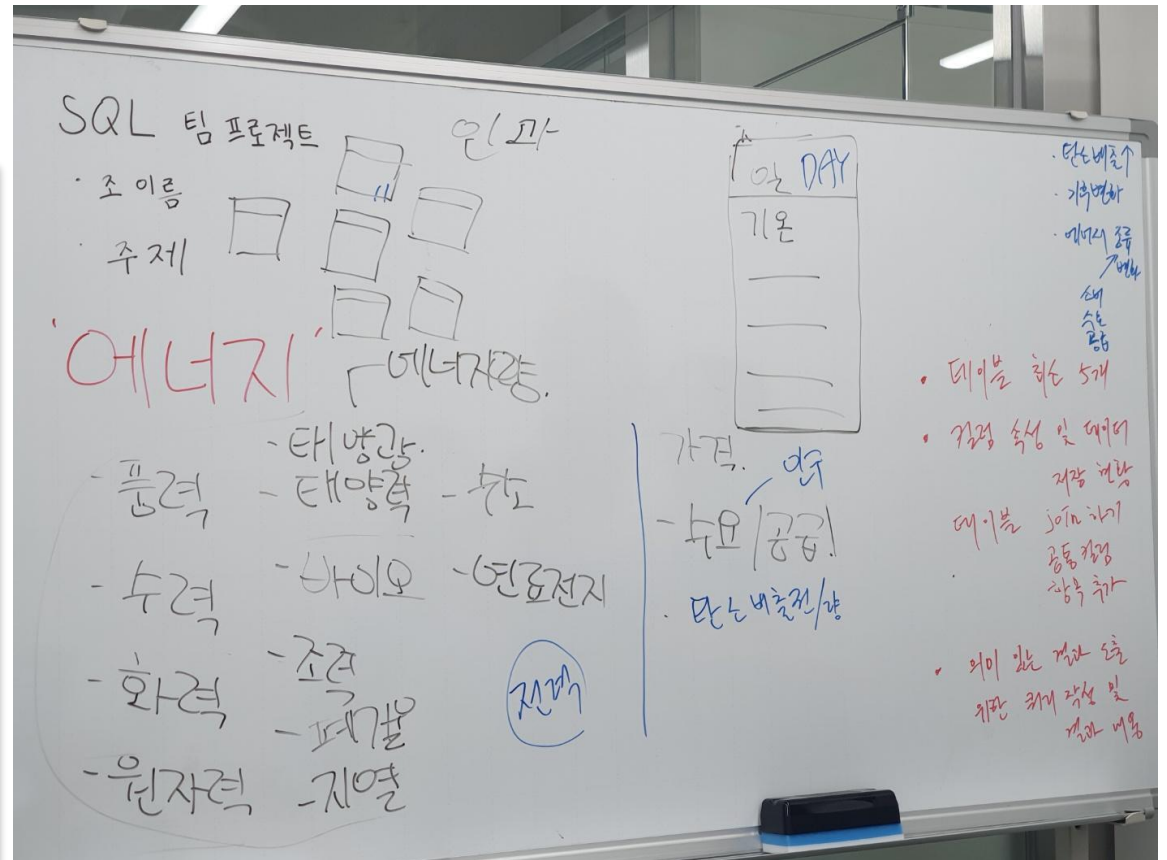 SQL 팀 프로젝트
· 조 이름
· 주제
인과
'에너지'
에너지량.
- 풍력
- 수력
- 화력
- 원자력
- 태양광.
- 태양력
- 바이오
- 조력
- 폐기물
- 지열
- 수소
- 연료전지
전력
일 DAY
기온
가격.
인구
- 수요/공급!
· 탄소배출권/량
· 탄소배출↑
· 기후변화
· 에너지 종류
변화
소비
수요
공급
· 테이블 최소 5개
· 컬럼 속성 및 데이터
저장 현황
테이블 join 하기
· 공통컬럼
항목 추가
· 의미 있는 결과 도출
위한 쿼리 작성 및
결과 내용